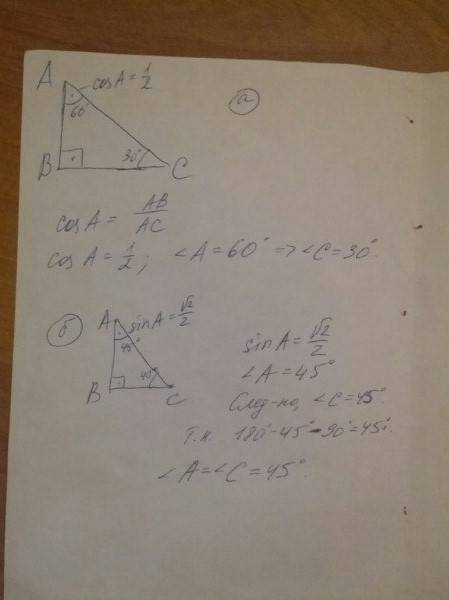 A cosA = 1/2
60°
B 30° C
а
cosA = AB/AC
cosA = 1/2; ∠A = 60° => ∠C = 30°.
б
A sinA = √2/2
45°
B 40° C
sinA = √2/2
∠A = 45°
След-но, ∠C = 45°
Т.к. 180° - 45° - 90° = 45°.
∠A = ∠C = 45°.